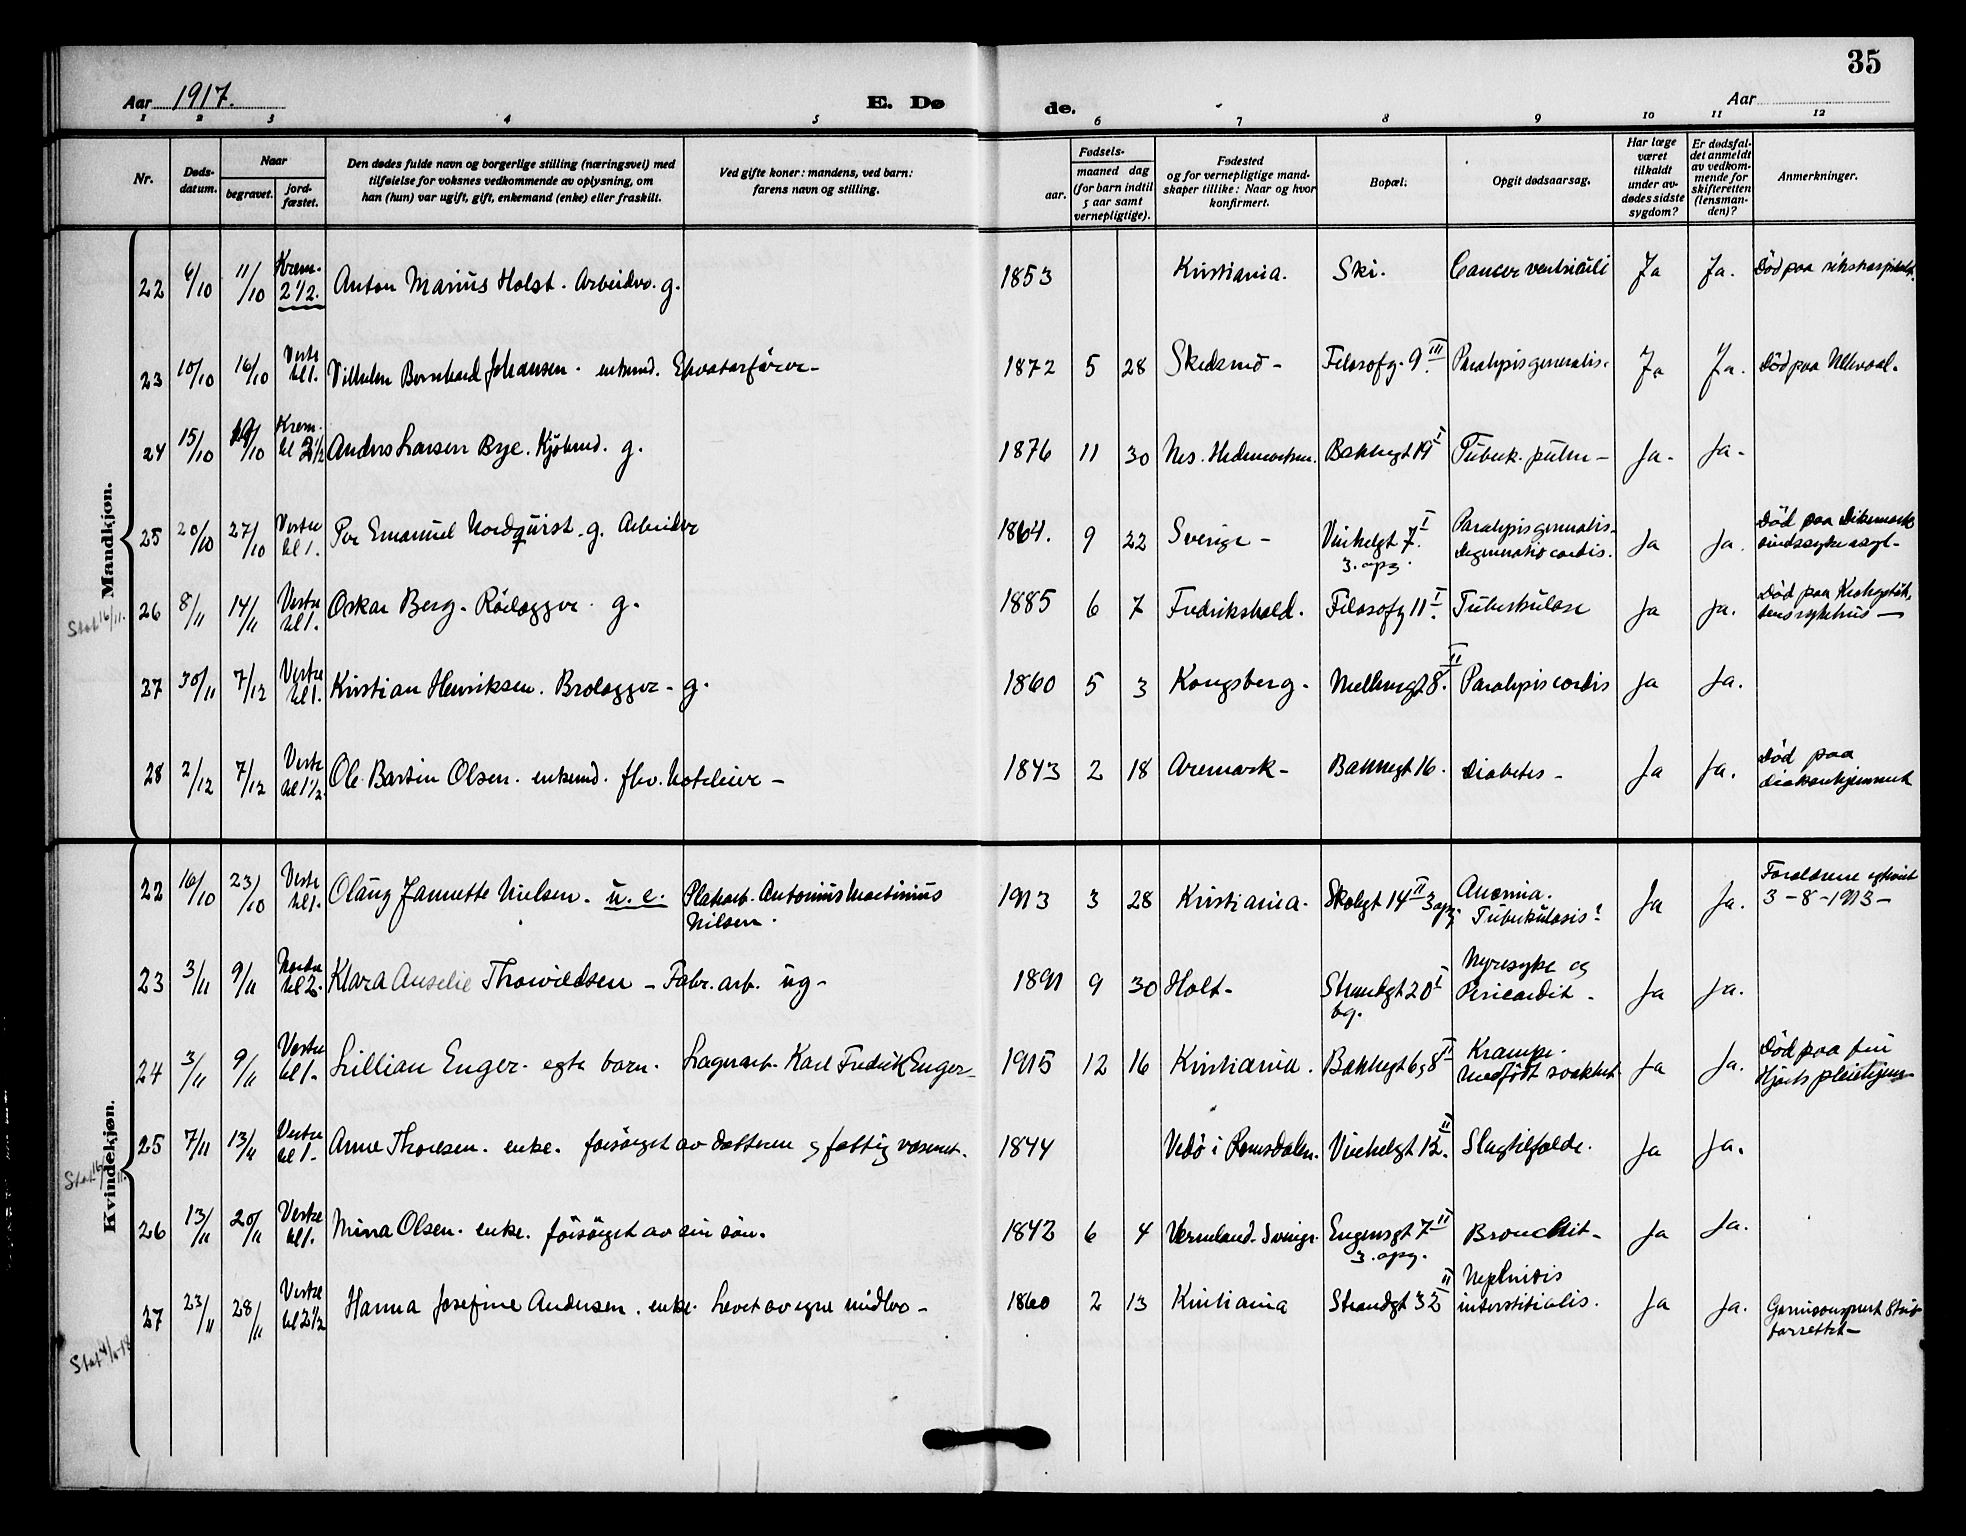 35
Aar 1917.
E. Dø de.
Aar
1 2 3 4 5 6 7 8 9 10 11 12
Nr.
Døds-datum.
Naar
begravet.
jord-fæstet.
Den dødes fulde navn og borgerlige stilling (næringsvei) med
tilføielse for voksnes vedkommende av oplysning, om
han (hun) var ugift, gift, enkemand (enke) eller fraskilt.
Ved gifte koner: mandens, ved barn:
farens navn og stilling.
Fødsels-
aar.
maaned dag
(for barn indtil
5 aar samt
vernepligtige).
Fødested
og for vernepligtige mand-
skaper tillike: Naar og hvor
konfirmert.
Bopæl.
Opgit dødsaarsag.
Har læge
været
tilkaldt
under av-
dødes sidste
sygdom?
Er dødsfal-
det anmeldt
av vedkom-
mende for
skifteretten
(lensman-
den)?
Anmerkninger.
Mandkjøn.
22 6/10 11/10 Krem. 2 1/2. Anton Marius Holst. Arbeider. g. 1853 Kristiania. Ski. Cancer ventriculi Ja Ja. Död paa rikshospitalet.
23 10/10 16/10 Vestre kl 1. Vilhelm Bernhard Johansen. enkemd. Elevatorförer - 1872 5 28 Skedsmo - Filosofg. 9 III Paralysis generalis. Ja Ja. Död paa Ullevaal.
24 15/10 /10 Krem. kl 2 1/2 Anders Larsen Bye. Kjöbmd. g. 1876 11 30 Nes. Hedemarken. Bakkegt 19 I Tuberk. pulm - Ja. Ja.
25 20/10 27/10 Vestre kl 1. Per Emanuel Nordquist. g. Arbeider 1864. 9 22 Sverige - Vinkelgt 7 I 3. opg. Paralysis generalis. Degeneratio cordis. Ja Ja. Död paa Dikemark sindssykeasyl -
Stat 16/11.
26 8/11 14/11 Vestre kl 1. Oskar Berg. g. 1885 6 7 Fredrikshald. Filosofg 11 I Tuberkulose Ja Ja. Död paa Krohgstöttens sykehus -
27 30/11 7/12 Vestre kl 1. Kristian Henriksen. Brolegger - g. 1860 5 3 Kongsberg. Möllergt 8 II Paralysis cordis Ja Ja.
28 2/12 7/12 Vestre kl 1 1/2 Ole Bastin Olsen. enkemd. fhv. hoteleier - 1843 2 18 Aremark - Bakkegt 16. Diabetes - Ja Ja. Död paa diakonhjemmet
Kvindekjøn.
22 16/10 23/10 Vestre kl 1. Olaug Jannette Nielsen. u. e. Platearb. Antonius Martinius Nilsen. 1913 3 28 Kristiania. Skolegt 14 II 3 opg. Anæmia. Tuberkulosis? Ja Ja. Forældrene egteviet 3-8-1913 -
23 3/11 9/11 Nordre kl 2. Klara Amelie Thorvildsen - Fabr. arb. ug - 1891 9 30 Holt - Strandgt 20 I bg. Nyresyke og Pericardit - Ja Ja.
24 3/11 9/11 Vestre kl 1. Lillian Enger. egte barn. Lagerarb. Karl Fredrik Enger - 1915 12 16 Kristiania. Bakkegt 6 g 8 II Krampe. Medfödt svakhet Ja Ja. Död paa fru Hjorts pleiehjem -
Stat 16/11.
25 7/11 13/11 Vestre kl 1. Anne Thoresen. enke. forsörget av datteren og fattigvæsenet. 1844 Vedö i Romsdalen. Vinkelgt 12 II. Slagtilfælde. Ja Ja.
26 13/11 20/11 Vestre kl 1. Mina Olsen. enke. forsörget av sin sön. 1842 6 4 Vermland. Sverige. Eugensgt 7 II 3. opg. Bronchit - Ja Ja.
27 23/11 28/11 Vestre kl 2 1/2 Hanna Josefine Andersen. enke. Levet av egne midler - 1860 2 13 Kristiania Strandgt 32 II Nephritis interstitialis. Ja Ja. Garnisonsprest forrettet -